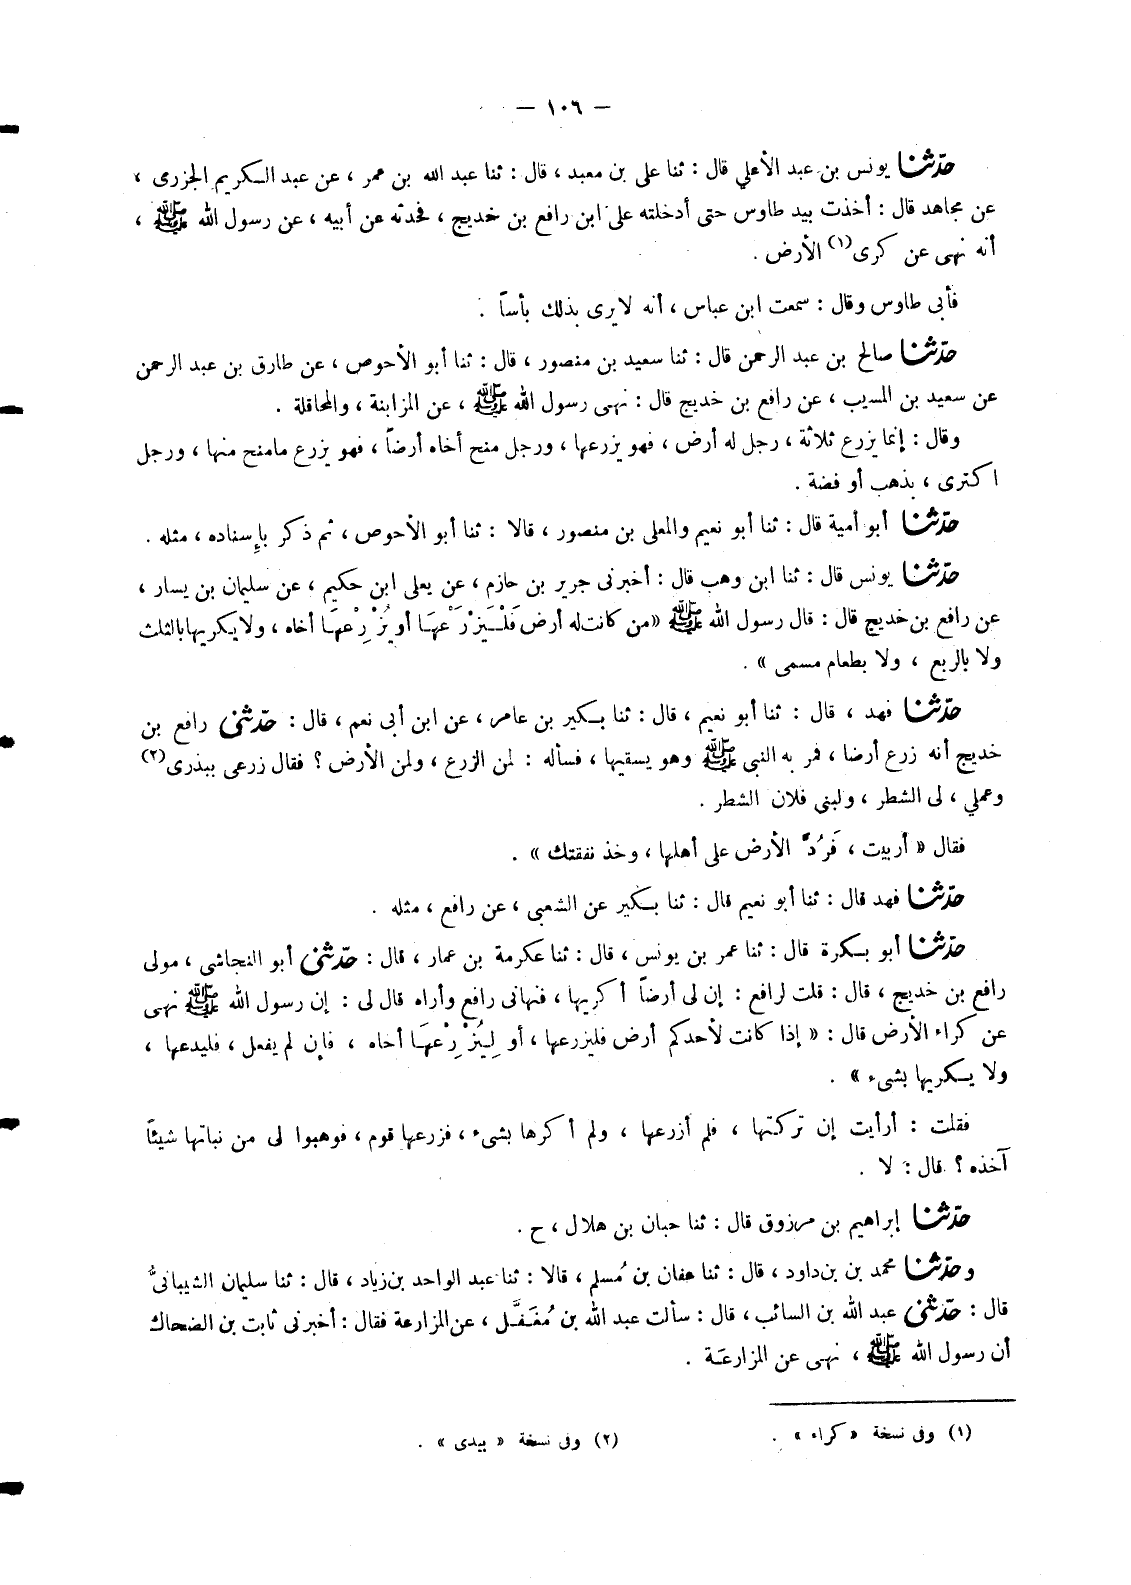 — ١٠٦ —
حدّثنا يونس بن عبد الأعلي قال : ثنا على بن معبد ، قال : ثنا عبد الله بن عمر ، عن عبد الكريم الجزرى ،
عن مجاهد قال : أخذت بيد طاوس حتى أدخلته على ابن رافع بن خديج ، فحدثه عن أبيه ، عن رسول الله ﷺ ،
أنه نهى عن كرى(١) الأرض .
فأبى طاوس وقال : سمعت ابن عباس ، أنه لايرى بذلك بأساً .
حدّثنا صالح بن عبد الرحمن قال : ثنا سعيد بن منصور ، قال : ثنا أبو الأحوص ، عن طارق بن عبد الرحمن
عن سعيد بن المسيب ، عن رافع بن خديج قال : نهى رسول الله ﷺ ، عن المزابنة ، والمحاقلة .
وقال : إنما يزرع ثلاثة ، رجل له أرض ، فهو يزرعها ، ورجل منح أخاه أرضاً ، فهو يزرع مامنح منها ، ورجل
اكترى ، بذهب أو فضة .
حدّثنا أبو أمية قال : ثنا أبو نعيم والمعلى بن منصور ، قالا : ثنا أبو الأحوص ، ثم ذكر بإسناده ، مثله .
حدّثنا يونس قال : ثنا ابن وهب قال : أخبرنى جرير بن حازم ، عن يعلى ابن حكيم ، عن سليمان بن يسار ،
عن رافع بن خديج قال : قال رسول الله ﷺ «من كانت له أرض فَلْيَزْرَعْهَا أو يُزْرِعْهَا أخاه ، ولا يكريها بالثلث
ولا بالربع ، ولا بطعام مسمى » .
حدّثنا فهد ، قال : ثنا أبو نعيم ، قال : ثنا بكير بن عامر ، عن ابن أبى نعم ، قال : حدّثنى رافع بن
خديج أنه زرع أرضا ، فمر به النبى ﷺ وهو يسقيها ، فسأله : لمن الزرع ، ولمن الأرض ؟ فقال زرعى ببذرى(٢)
وعملي ، لى الشطر ، ولبنى فلان الشطر .
فقال « أربيت ، فَرُدَّ الأرض على أهلها ، وخذ نفقتك » .
حدّثنا فهد قال : ثنا أبو نعيم قال : ثنا بكير عن الشعبى ، عن رافع ، مثله .
حدّثنا أبو بكرة قال : ثنا عمر بن يونس ، قال : ثنا عكرمة بن عمار ، قال : حدّثنى أبو النجاشى ، مولى
رافع بن خديج ، قال : قلت لرافع : إن لى أرضاً أكريها ، فنهانى رافع وأراه قال لى : إن رسول الله ﷺ نهى
عن كراء الأرض قال : « إذا كانت لأحدكم أرض فليزرعها ، أو لِيُزْرِعْهَا أخاه ، فإن لم يفعل ، فليدعها ،
ولا يكريها بشىء » .
فقلت : أرأيت إن تركتها ، فلم أزرعها ، ولم أكرها بشىء ، فزرعها قوم ، فوهبوا لى من نباتها شيئاً
آخذه ؟ قال : لا .
حدّثنا إبراهيم بن مرزوق قال : ثنا حبان بن هلال ، ح .
وحدّثنا محمد بن بن داود ، قال : ثنا عفان بن مُسلم ، قالا : ثنا عبد الواحد بن زياد ، قال : ثنا سليمان الشيبانىُّ
قال : حدّثنى عبد الله بن السائب ، قال : سألت عبد الله بن مُغَفَّل ، عن المزارعة فقال : أخبرنى ثابت بن الضحاك
أن رسول الله ﷺ ، نهى عن المزارعة .
(١) وفى نسخة « كراء » . (٢) وفى نسخة « بيدى » .